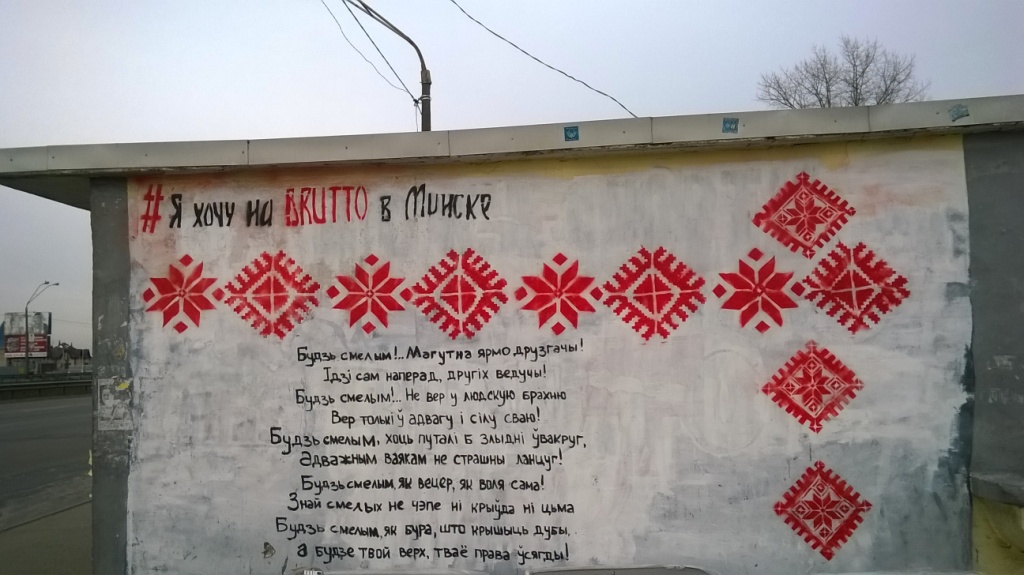 #Я хочу на BRUTTO в Минске
Будзь смелым!.. Магутна ярмо друзгачы!
Ідзі сам наперад, другіх ведучы!
Будзь смелым!.. Не вер у людскую брахню
Вер толькі ў адвагу і сілу сваю!
Будзь смелым, хоць путалі б злыдні ўвакруг,
Адважным ваякам не страшны ланцуг!
Будзь смелым, як вецер, як воля сама!
Знай смелых не чэпе ні крыўда ні цьма
Будзь смелым, як бура, што крышыць дубы,
а будзе твой верх, тваё права ўсягды!